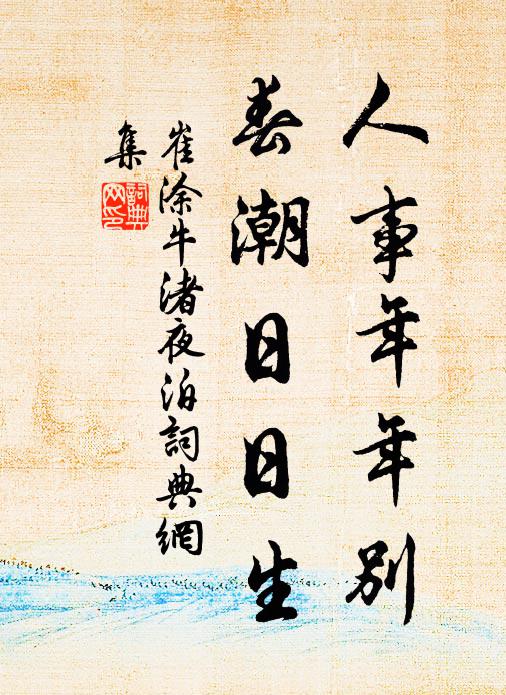 人事年年別
春潮日日生
崔涂牛渚夜泊詞典網
集
詞典網印